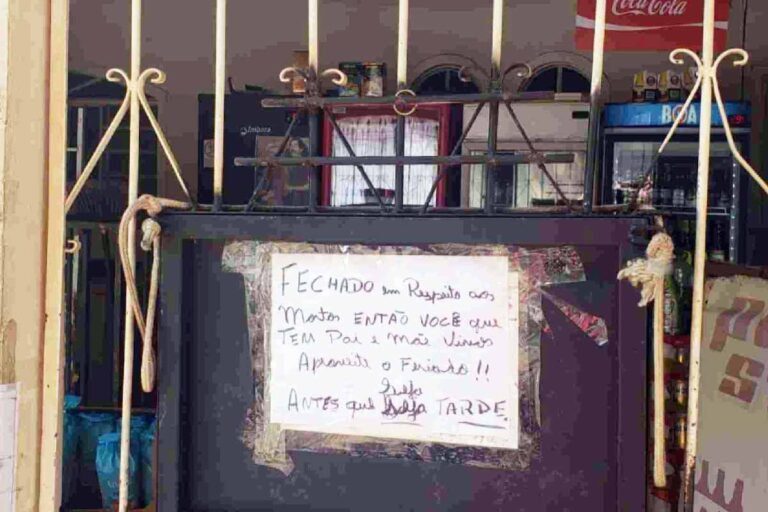 Coca-Cola
BOA
FECHADO em Respeito aos
Mortos ENTÃO VOCÊ que
TEM Pai e mãe Vivos
Aproveite o Feriado!!
Seja
ANTES que Seja TARDE.